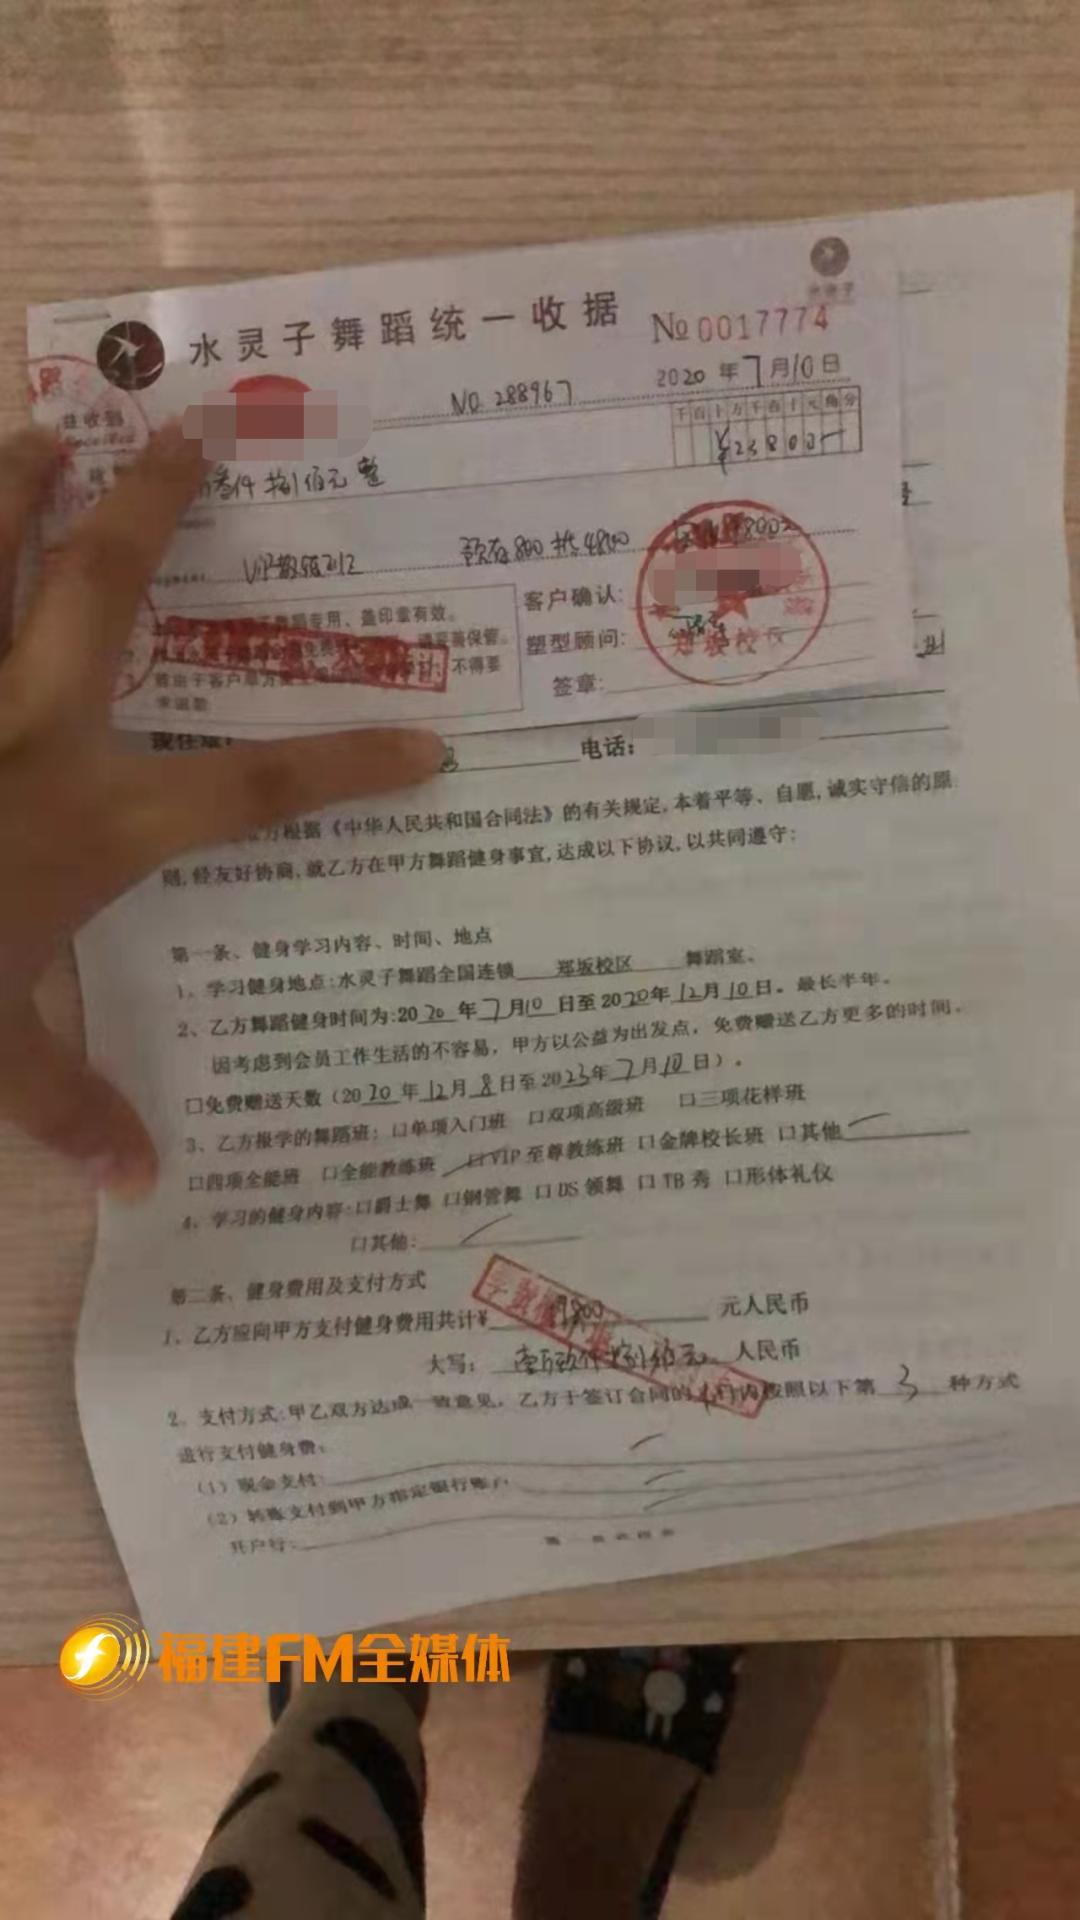 水灵子舞蹈统一收据
№0017774
NO. 288967
2020 年 7 月 10 日
兹收到
Received
千百十万千百十元角分
¥23800
叁仟捌佰元整
预存800 抵4800
专用、盖印章有效。
请妥善保管。
不得要
求退款
客户确认:
塑型顾问:
签章:
郑坂校区
现住址:
电话:
方根据《中华人民共和国合同法》的有关规定,本着平等、自愿,诚实守信的原
则,经友好协商,就乙方在甲方舞蹈健身事宜,达成以下协议,以共同遵守:
第一条、健身学习内容、时间、地点
1、学习健身地点:水灵子舞蹈全国连锁 郑坂校区 舞蹈室。
2、乙方舞蹈健身时间为:2020年7月10日至2020年12月10日。最长半年。
因考虑到会员工作生活的不容易,甲方以公益为出发点,免费赠送乙方更多的时间。
口免费赠送天数(2020年12月8日至2023年7月10日)。
3、乙方报学的舞蹈班:口单项入门班 口双项高级班 口三项花样班
口四项全能班 口全能教练班 口VIP至尊教练班 口金牌校长班 口其他
4、学习的健身内容:口爵士舞 口钢管舞 口DS领舞 口TB秀 口形体礼仪
口其他:
第二条、健身费用及支付方式
1、乙方应向甲方支付健身费用共计¥ 19800 元人民币
大写: 壹万玖仟捌佰元 人民币
2、支付方式:甲乙双方达成一致意见,乙方于签订合同的 日内按照以下第 3 种方式
进行支付健身费:
(1)现金支付:
(2)转账支付到甲方指定银行账户
开户行:
福建FM全媒体